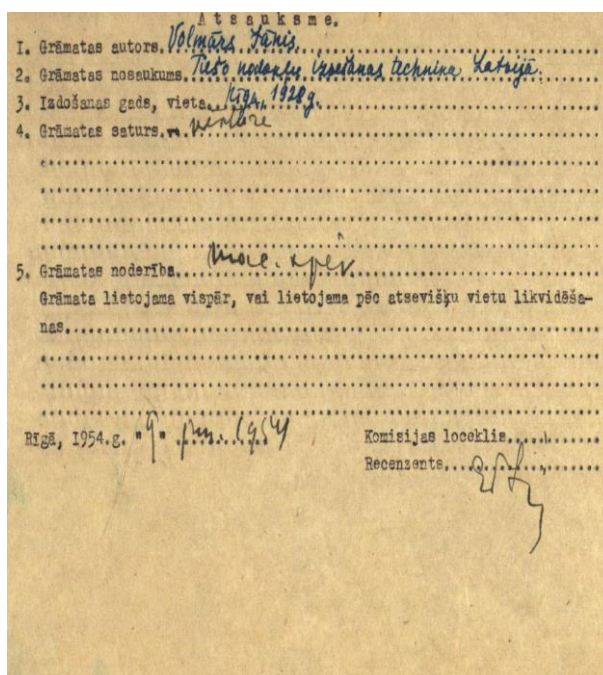 Atsauksme.
I. Grāmatas autors. Volmārs Jānis.
2. Grāmatas nosaukums. Tiešo nodokļu technika Latvijā.
3. Izdošanas gads, vieta. Rīga, 1928 g.
4. Grāmatas saturs.
5. Grāmatas noderība.
Grāmata lietojama vispār, vai lietojama pēc atsevišķu vietu likvidēša-
nas.
Rīgā, 1954.g. "9" 1954
Komisijas loceklis.
Recenzents.